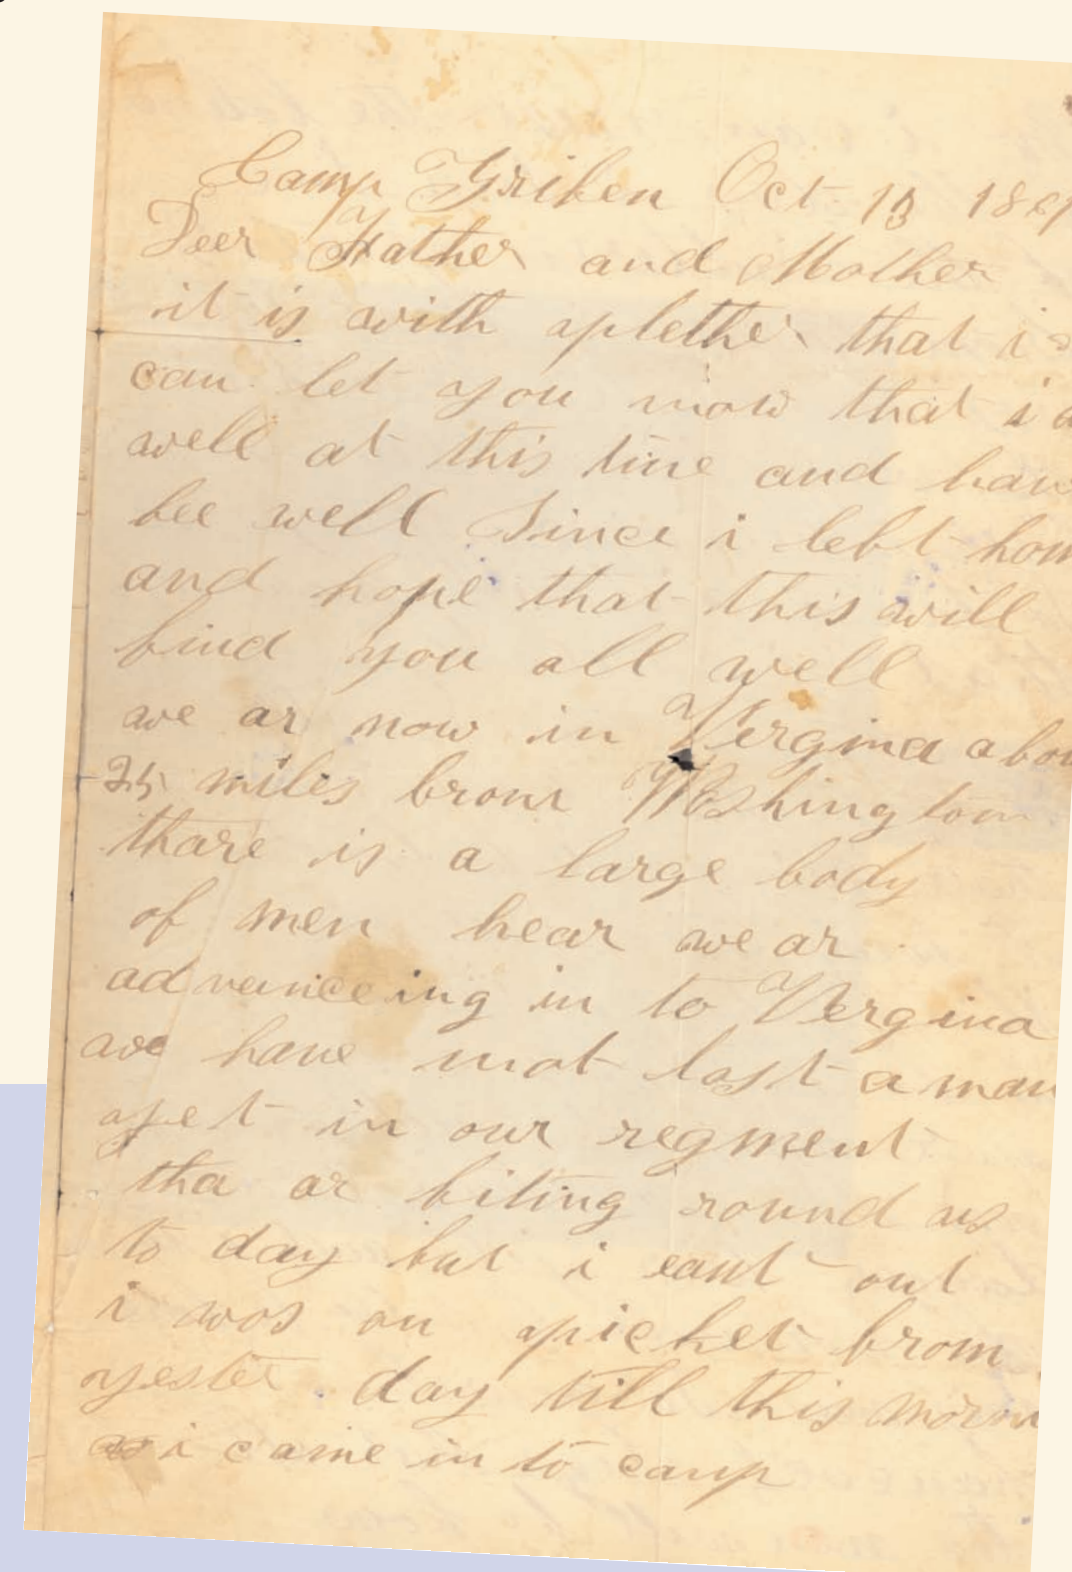 Camp Grifen Oct 13 1861
Deer Father and Mother
it is with plether that i
can let you now that i a
well at this time and hav
bee well Since i left hom
and hope that this will
find you all well
we ar now in Vergina abou
25 miles from Washington
thare is a large body
of men hear we ar
advanceing in to Vergina
we have not lost a man
yet in our regment
tha ar fiting round us
to day but i eant out
i was on picket from
yester day till this morni
i came in to camp